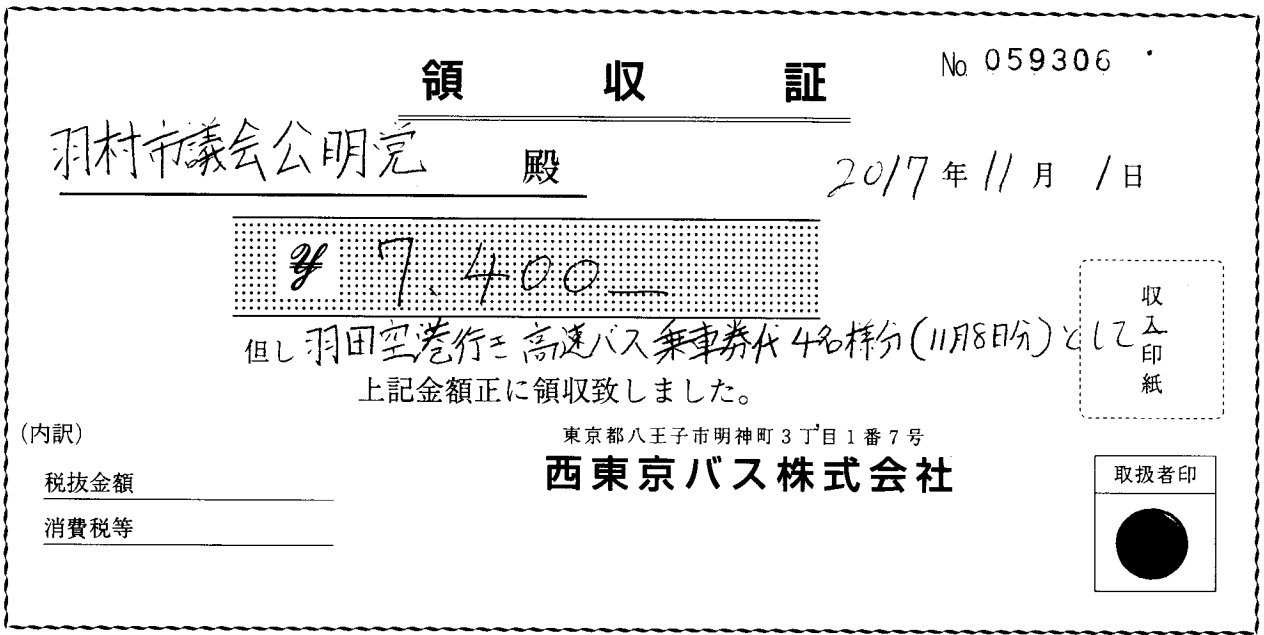 領収証
No. 059306
羽村市議会公明党 殿
2017年11月1日
¥7.400—
但し 羽田空港行き 高速バス 乗車券代 4名様分(11月8日分)として
上記金額正に領収致しました。
収入印紙
(内訳)
税抜金額
消費税等
東京都八王子市明神町3丁目1番7号
西東京バス株式会社
取扱者印